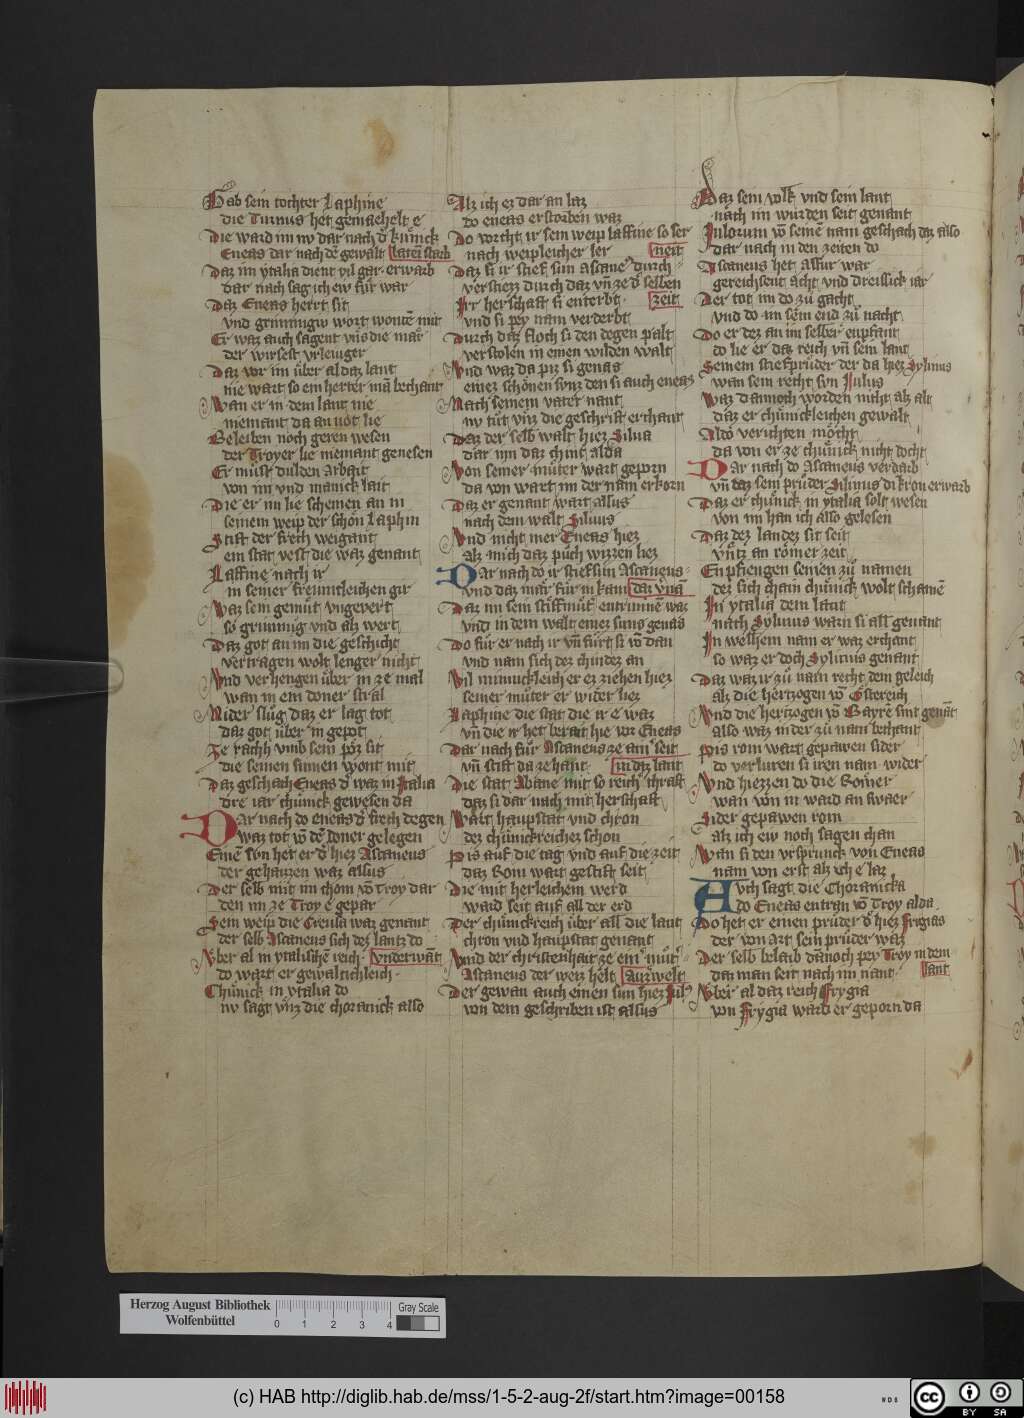 Gab sein tochter Laphine
die Turnus het gemaehelt e
Die ward im nv dar nach d̕ kuͤnick
Eneas dar nach dē gewalt latein starb
Daz im ytalia dient vil gar erwarb
dar nach sag ich ew fuͤr war
Daz Eneas herrt sit
vnd grimmigw wort wontē mit
Er waz auch sagent vns die maͤr
der wirsest vrleuger
Daz vor im uͤber al daz lant
nie wart so ein herter mā bechant
Wan er in dem lant nie
niemant da an not lie
Beleiben noch geren wesen
der Troyer lie niemant genesen
Er muͤst dulden arbait
von im vnd manick lait
Die er im lie scheinen an in
seinem weip der schoͤn Laphin
Stift der frech weigant
ein stat vest die waz genant
Laffine nach ir
in seiner freuntleichen gir
Waz sein gemuͤt vngevert
so grimmig vnd als wert
Daz got an im die geschicht
vertragen wolt lenger nicht
Vnd verhengen uͤber in ze mal
wan in ein doner stral
Nider sluͤg daz er lag tot
daz got uͤber in gepot
Ze rachh vmb sein poͤz sit
die seinen sinnen wont mit
Daz geschach Eneas d̕ waz in Italia
dre iar chuͤnick gewesen da
Dar nach do eneas d̕ frech degen
waz tot vō dē doner gelegen
Einē svn het er d̕ hiez Ascaneus
der gehaizzen waz allus
Der selb mit im chom vō Troy dar
den im ze Troy e gepar
Sein weip die Creula waz genant
der selb Ascaneus sich dez lantz do
Vber al in ytalischē reich vnderwāt
do wart er gewaltichleich
Chuͤnick in ytalia do
nv sagt vnz die choranick also
Alz ich ez dar an laz
do eneas erstorben waz
Do vorcht ir sein weip laffine so ser
nach weipleicher ler neit
Daz si ir stief sun Ascane⁹ durch
verstiezz durch daz vn̄ ze d̕ selben
Irr herschaft si enterbt zeit
vnd si pey nam verderbt
Durch daz floch si den degen palt
verstolen in einen wilden walt
Vnd waz da piz si genas
einez schoͤnen svnz den si auch eneas
Nach seinem vater nant
nv tuͤt vnz die geschrift erchant
Daz der selb walt hiez Silva
dar inn daz chint alda
Von seiner muͤter wart geporn
da von wart im der nam erkorn
Daz er genant wart allus
nach dem walt Siluius
Vnd nicht mer Eneas hiez
alz mich daz puͤch wizzen liez
Dar nach do ir stiefsun Ascaneus
vnd daz mar fuͤr in kam daz vnā
Daz im sein stiffmuͤt̕ entrunne waz
vnd in dem walt einez suns genas
Do fuͤr er nach ir vn̄ fuͤrt si vō dan
vnd nam sich dez chindez an
Vil minnichleich er ez ziehen hiez
seiner muͤter er wider liez
Laphine die stat die ir e waz
vn̄ die ir het berait hie vor Eneas
Dar nach fuͤr Ascaneus ze ain seit
vn̄ stift da ze hant in daz lant
Die stat Abane mit so reich chraft
daz si dar nach mit herschaft
Wart haupstat vnd chron
dez chuͤnickreichez schon
Pis auf die tag vnd auf die zeit
daz Rom wart gestift seit
Die mit herleichem werd
ward seit auf all der erd
Der chuͤnickreich uͤber all die lant
chron vnd haupstat genant
Vnd der christenhait ze ein muͤt̕
Ascaneus der weiz helt auzwelt
Der gewan auch einen sun hiez Jul⁹
von dem geschriben ist allus
Daz sein volk vnd sein lant
nach im wurden seit genant
Julorum vō seinē nam geschach daz also
dar nach in den zeiten do
Ascaneus het allur war
gereichsent acht vnd dreissick iar
Der tot im do zuͤ gacht
vnd do im sein end zuͤ nacht
Do er dez an im selber enpfant
do lie er daz reich vn̄ sein lant
Seinem stiefpruͤder der da hiez Sylvius
wan sein recht svn Julus
Waz dannoch worden nicht alz alt
daz er chuͤnickleichen gewalt
Aldo verichten moͤcht
da von er ze chuͤnick nicht tocht
Dar nach do Ascaneus verdarb
vn̄ daz sein pruͤder Siluius di kron erwarb
Daz er chuͤnick in ytalia solt wesen
von im han ich also gelesen
Daz dez landez sit seit
vn̄tz an roͤmer zeit
Enpfiengen seinen zuͤ namen
dez sich chain chuͤnick wolt schamē
In ytalia dem lant
nach Syluius warn si all genant
In welhem nam er waz erchant
so waz er doch Syluius genant
Daz waz ir zuͤ nam recht dem geleich
alz die hertzogen vō Oͤsterreich
Vnd die hertzogen vō Bayrē sint genāt
also waz in der zuͤ nam bechant
Pis rom wart gepawen sider
do verluren si iren nam wider
Vnd hiezzen do die Roͤmer
wan von in ward an swaer
Sider gepawen rom
alz ich ew noch sagen chan
Wan si den vrsprunck von Eneas
nam von erst alz ich e laz
Auch sagt die Choranicka
do Eneas entran vō Troy alda
Do het er einen pruͤder d̕ hiez Frigias
der von art sein pruͤder waz
Der selb belaib dānoch pey Troy in dem
daz man seit nach im nant lant
Vber al daz reich Frygia
von Frygia ward er geporn da
Herzog August Bibliothek
Wolfenbüttel
0 1 2 3 4
Gray Scale
(c) HAB http://diglib.hab.de/mss/1-5-2-aug-2f/start.htm?image=00158
WDB
cc BY SA